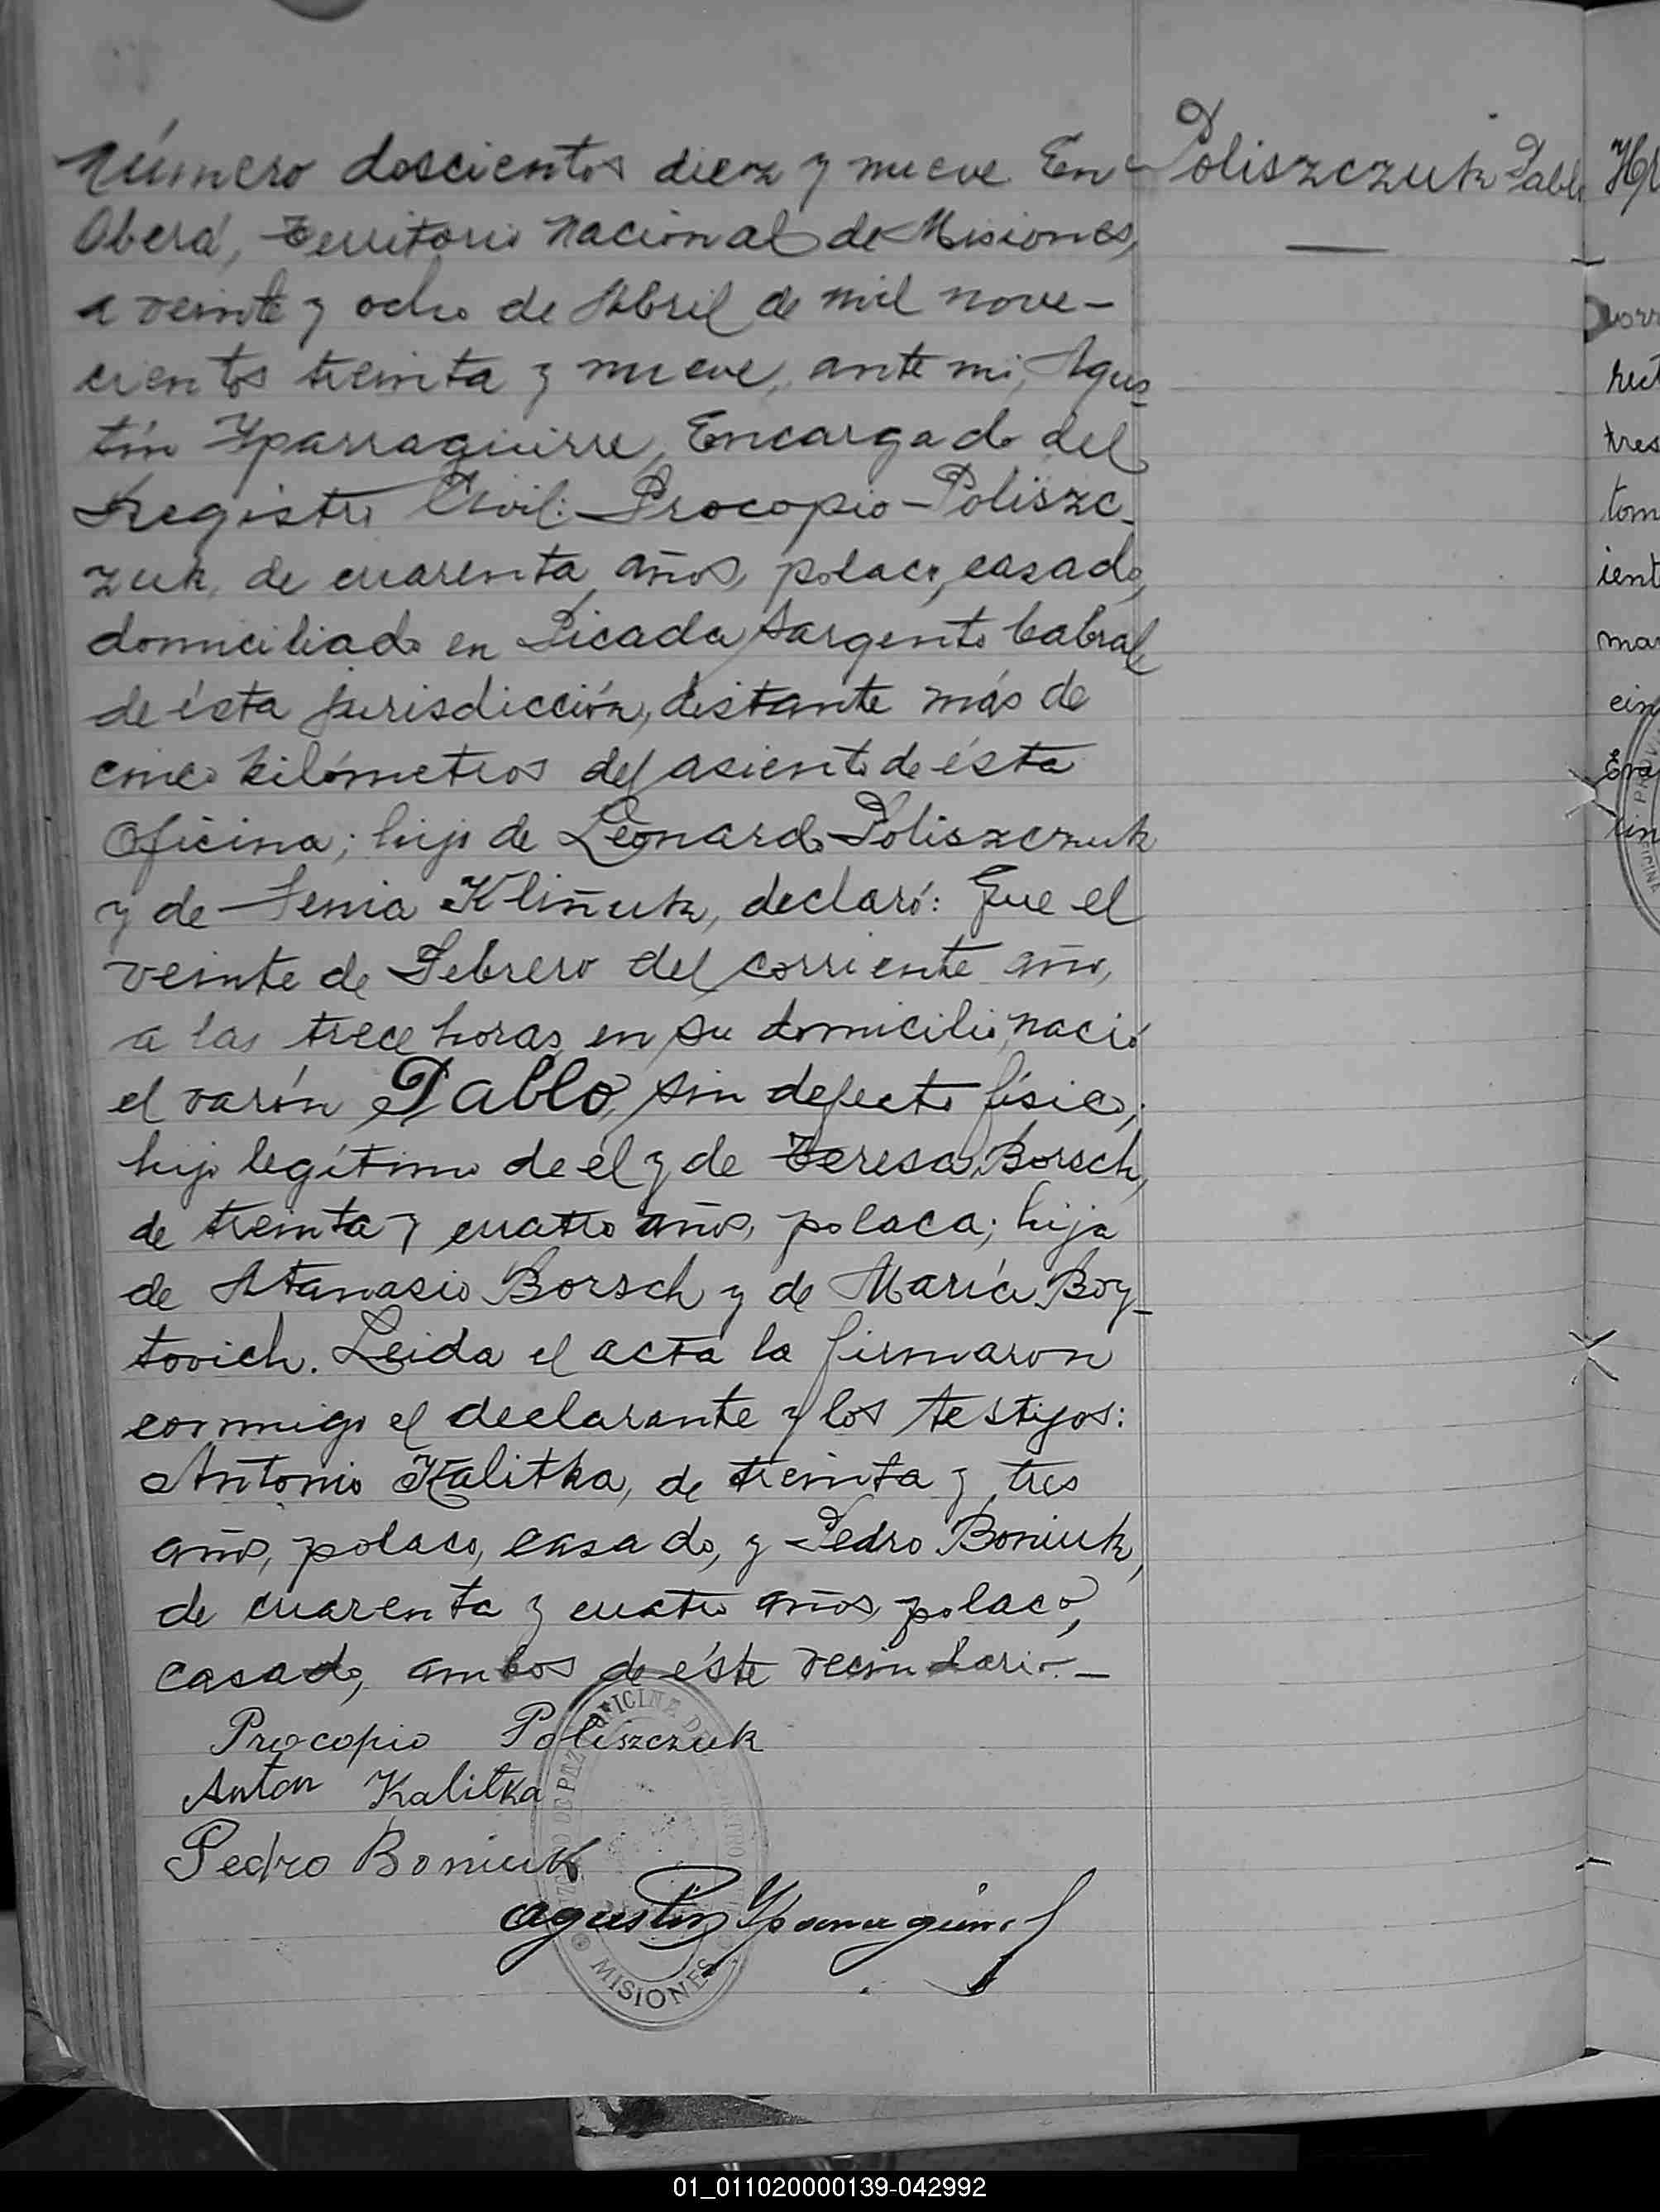 Número doscientos diez y nueve En
Poliszczuk Pablo
Oberá, Territorio Nacional de Misiones,
a veinte y ocho de Abril de mil nove-
cientos treinta y nueve, ante mi, Agus-
tín Yparraguirre, Encargado del
Registro Civil: Procopio Poliszc-
zuk, de cuarenta años, polaco, casado,
domiciliado en Picada Sargento Cabral
de ésta jurisdicción, distante más de
cinco kilómetros del asiento de ésta
Oficina; hijo de Leonardo Poliszczuk
y de Senia Kliñuk, declaró: Que el
veinte de Febrero del corriente año,
a las trece horas, en su domicilio, nació
el varón Pablo, sin defecto físico;
hijo legítimo de él y de Teresa Borsch,
de treinta y cuatro años, polaca; hija
de Atanasio Borsch y de María Boy-
tovich. Leida el acta la firmaron
conmigo el declarante y los testigos:
Antonio Kalitka, de treinta y tres
años, polaco, casado, y Pedro Boniuk,
de cuarenta y cuatro años, polaco,
casado, ambos de éste vecindario.-
Procopio Poliszczuk
Anton Kalitka
Pedro Boniuk
Agustín Yparraguirre
OFICINA DEL
JUZGADO DE PAZ
MISIONES
01_011020000139-042992